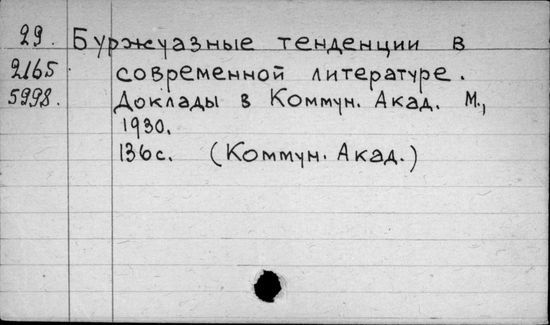 29. Буржуазные тенденции в
2165 современной литературе.
5998. Доклады в Коммун. Акад. М.,
1930.
136с. (Коммун. Акад.)